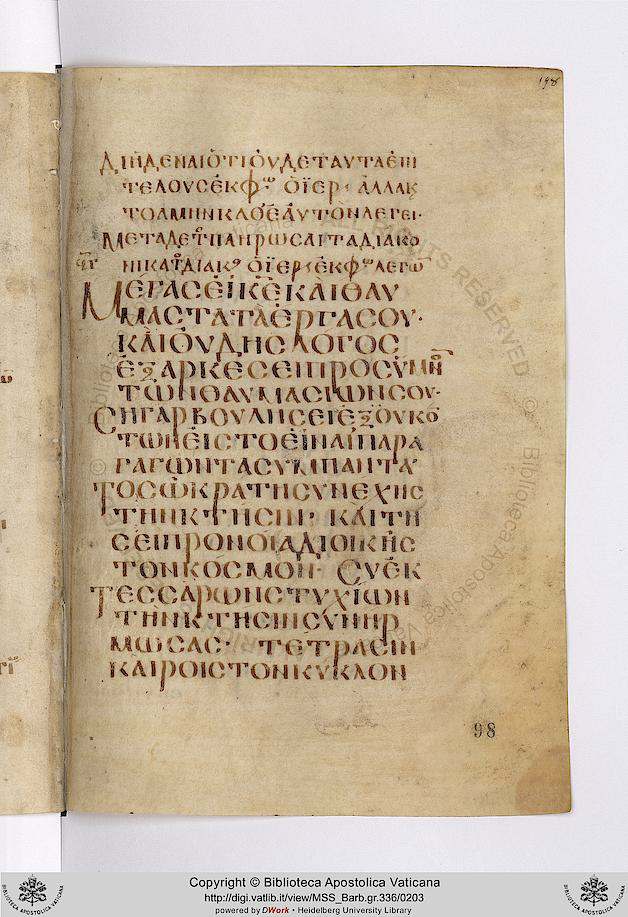 198
ΔΙΗΔΕΝΑΙΟΤΙΟΥΔΕΤΑΥΤΑΕΠΙ
ΤΕΛΟΥΣΕΚΦω ΟΪΕΡ ΑΛΛΑΚ
ΤΟΑΜΗΝΚΛΟΕΑΥΤΟΝΛΕΓΕΙ·
ΜΕΤΑΔΕΤΠΛΗΡΩΣΑΙΤΑΔΙΑΚΟ
ΝΙΚΑΤΔΙΑΚΟ ΟΪΕΡΕΚΦωΛΕΓΩ
ΜΕΓΑΣΕΙΚΕΚΑΙΘΑΥ
ΜΑΣΤΑΤΑΕΡΓΑΣΟΥ·
ΚΑΙΟΥΔΗΣΛΟΓΟΣ
ΕΞΑΡΚΕΣΕΙΠΡΟΣΫΜΝ
ΤΩΝΘΑΥΜΑΣΙΩΝΣΟΥ·
ΣΗΓΑΡΒΟΥΛΗΣΕΙΕΞΟΥΚΟ
ΤΩΝΕΙΣΤΟΕΙΝΑΙΠΑΡΑ
ΓΑΓΩΝΤΑΣΥΜΠΑΝΤΑ·
ΤΟΣΩΚΡΑΤΗΣΥΝΕΧΗΣ
ΤΗΝΚΤΗΣΙΝ, ΚΑΙΤΗ
ΣΕΙΠΡΟΝΟΙΑΔΙΟΙΚΗΣ
ΤΟΝΚΟΣΜΟΝ· ΣΥΕΚ
ΤΕΣΣΑΡΩΝΣΤΥΧΙΩΝ
ΤΗΝΚΤΗΣΙΝΣΥΝΗΡ
ΜΩΣΑΣ· ΤΕΤΡΑΣΙΝ
ΚΑΙΡΟΙΣΤΟΝΚΥΚΛΟΝ
98
Copyright © Biblioteca Apostolica Vaticana
http://digi.vatlib.it/view/MSS_Barb.gr.336/0203
powered by DWork • Heidelberg University Library